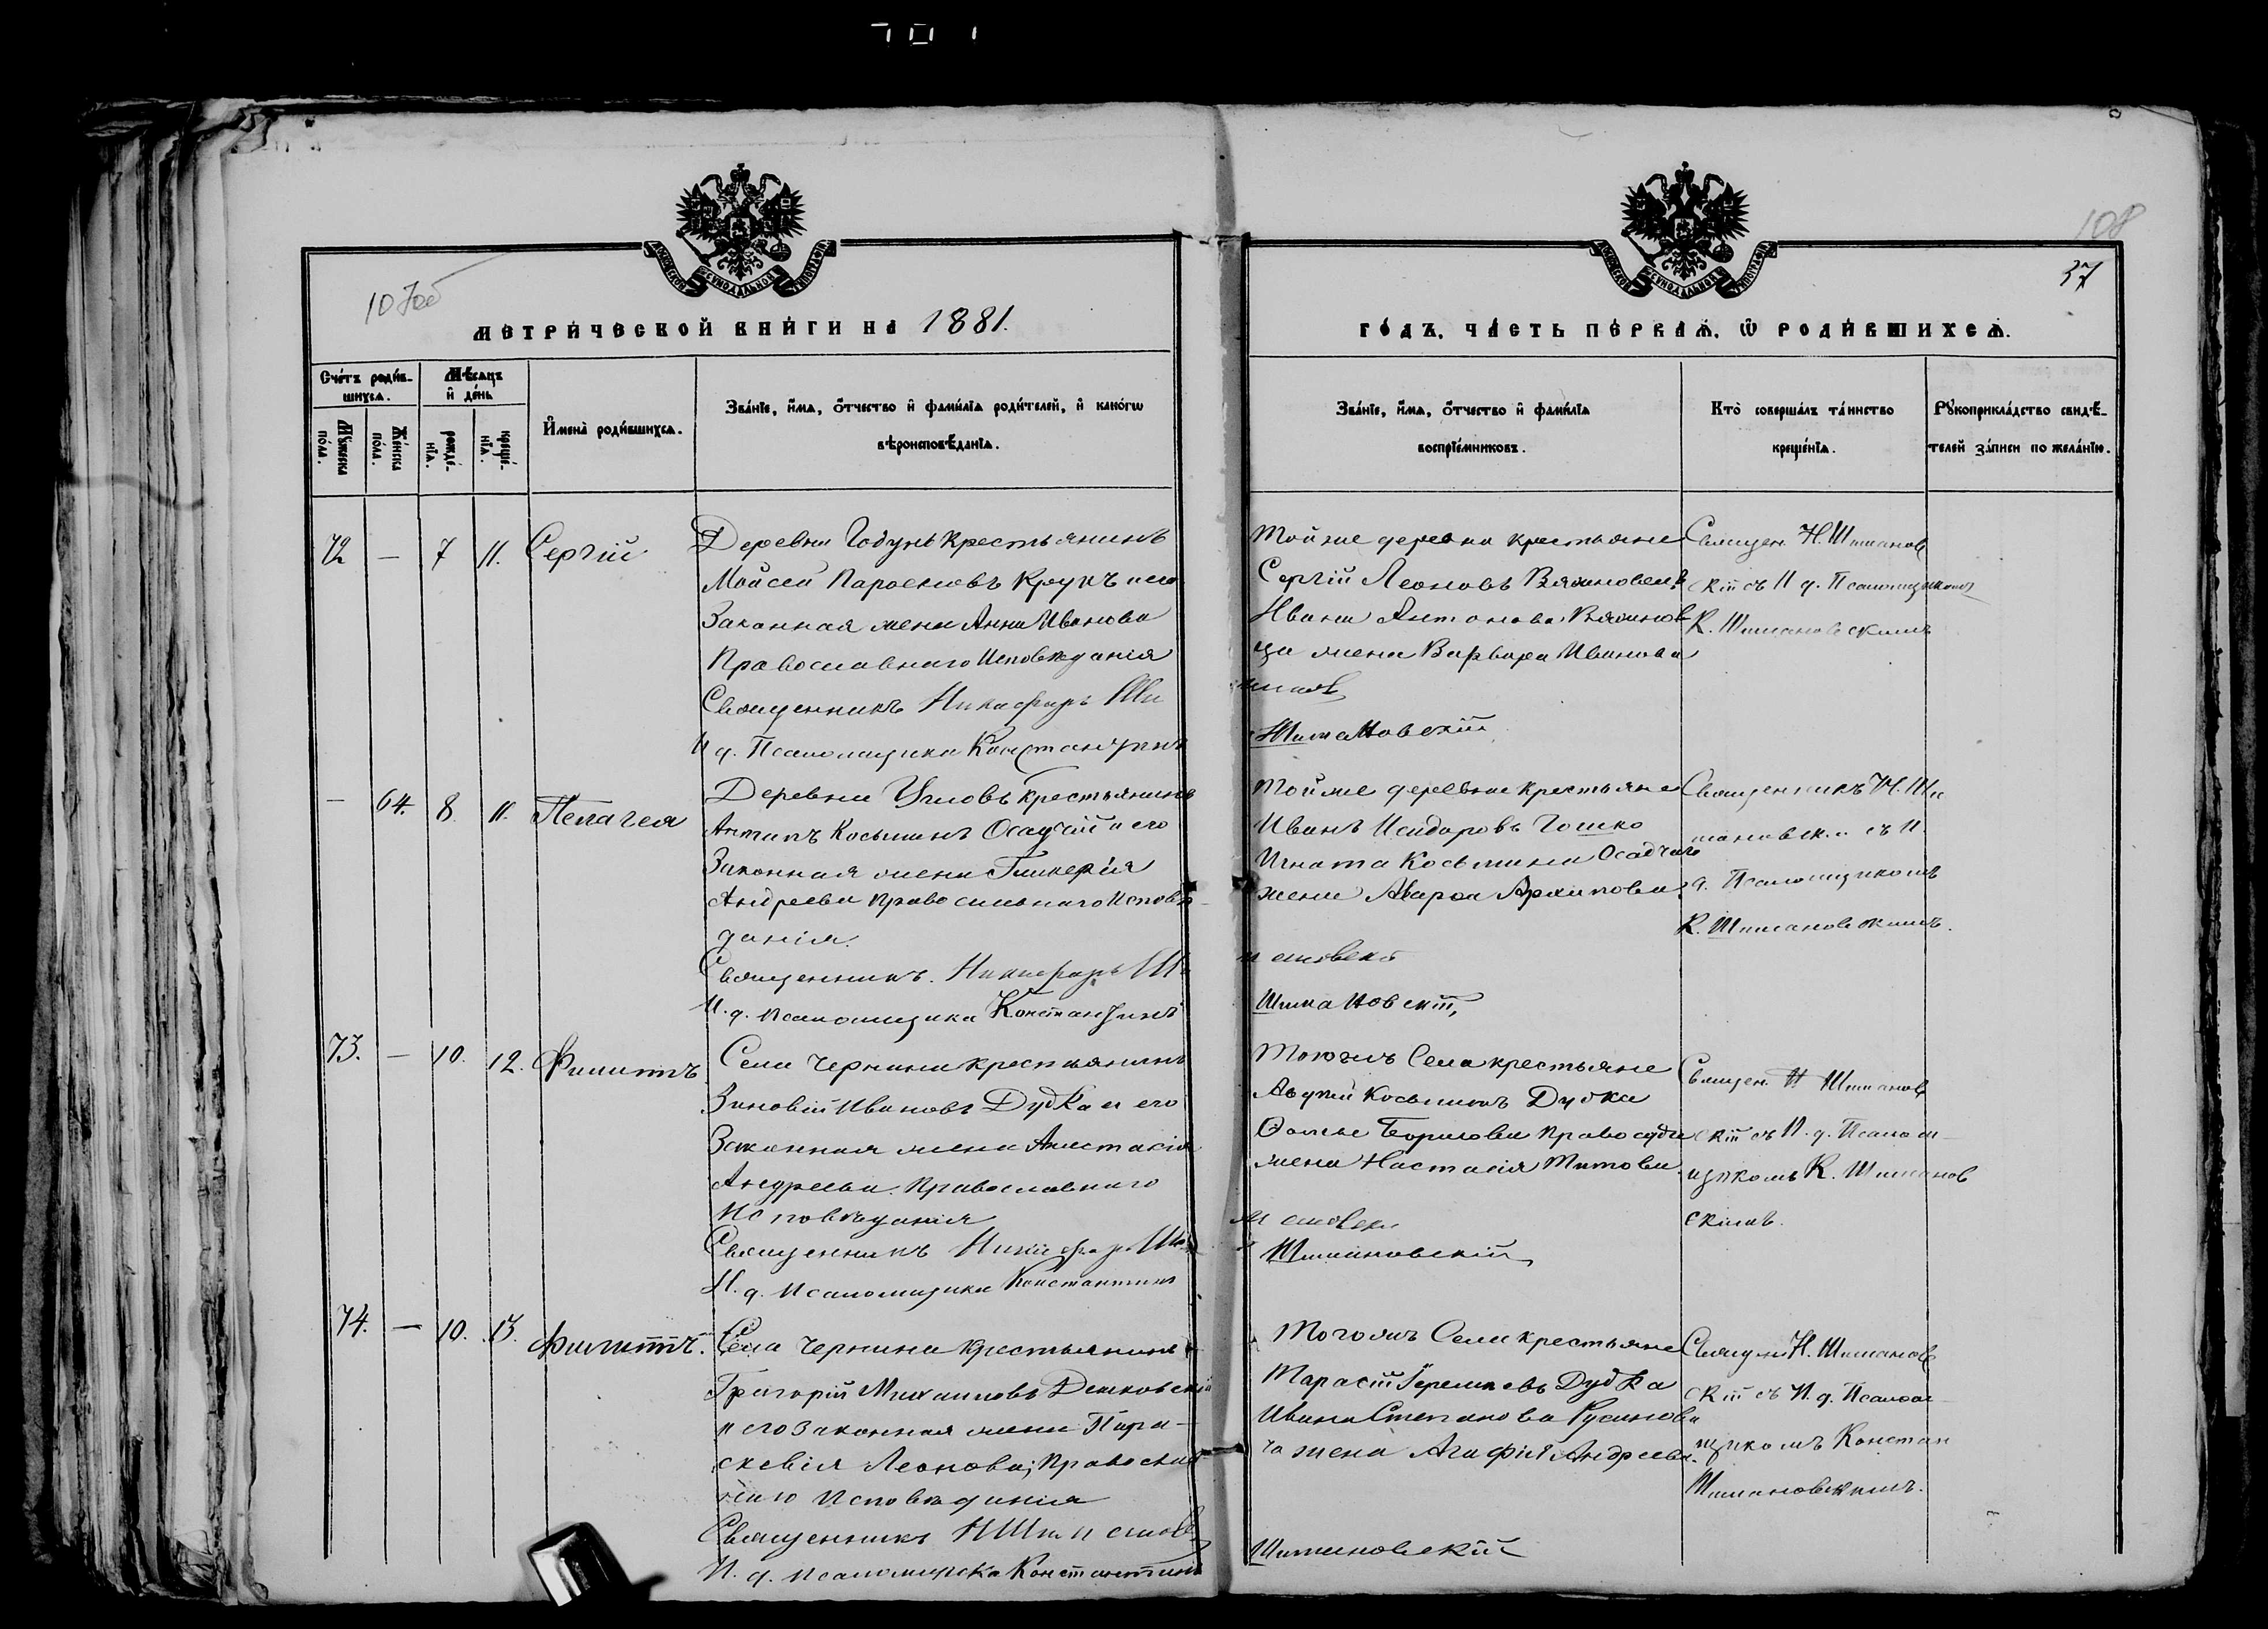 108
37
МЕТРИЧЕСКОЙ КНИГИ НА 1881.
ГОДЪ, ЧАСТЬ ПЕРВАЯ, Ѡ РОДИВШИХСЯ.
Счетъ родив-
шихся.
Мѣсяцъ
и день
Мужеска
пола.
Женска
пола.
рожде-
нїя.
креще-
нїя.
Имена родившихся.
Званїе, имя, отчество и фамилїа родителей, и какогω
вѣроисповѣданїя.
Званїе, имя, отчество и фамилїа
воспрїемниковъ.
Кто совершалъ таинство
крещенїя.
Рукоприкладство свидѣ-
телей записи по желанїю.
72 — 7 11. Сергій
Деревни Годунь крестьянинъ
Мойсей Крукъ и его
Законная жена Анна Иванова
Православнаго Исповѣданія
Священникъ Никифоръ Ши
И д. Псаломщика Константинъ
Тойже деревни крестьяне
Сергій Леоновъ
Ивана Антонова
ца жена Варвара Иванова
Шимановскій
Священ. Н. Шиманов
скій съ И д. Псаломщикомъ
К. Шимановскимъ
— 64. 8. 11. Пелагея
Деревни крестьянинъ
Антипъ Косьминъ Осадчій и его
Законная жена Гликерія
Андреева православнаго Исповѣ-
данія.
Священникъ. Никифоръ Ши
И. д. псаломщика Константинъ
Тойже деревни крестьяне
Иванъ Исидоровъ Гошко
Игната Косьмина Осадчаго
жена Архипова
мановскій
Шимановскій
Священникъ Н. Ши
мановск.. съ И.
д. Псаломщикомъ
К. Шимановскимъ.
73. — 10. 12. Филиппъ
Села Чернина крестьянинъ
Зиновій Ивановъ Дудка и его
Законная жена Анастасія
Андреева. Православнаго
Исповѣданія
Священникъ Никифоръ Ши
И. д. псаломщика Константинъ
Тогожъ Села крестьяне
Косьминъ Дудка
Борисова
жена Настасія Титова
мановскі
Шимановскій
Священ. Н Шиманов
скій съ И. д. Псалом-
щикомъ К. Шиманов
скимъ.
74. — 10. 13. Филиппъ.
Села Чернина крестьянинъ
Григорій Михаиловъ
и его законная жена Пара-
скевія Леонова, Православ
наго Исповѣданія
Священникъ Н Шиманов
И. д. псаломщика Константинъ
Тогожъ Села крестьяне
Тарасій Дудка
Ивана Степанова
жена Агафія Андреева.
Шимановскій
Священ Н. Шиманов
скій съ И. д. Псалом
щикомъ Констан
Шимановскимъ.